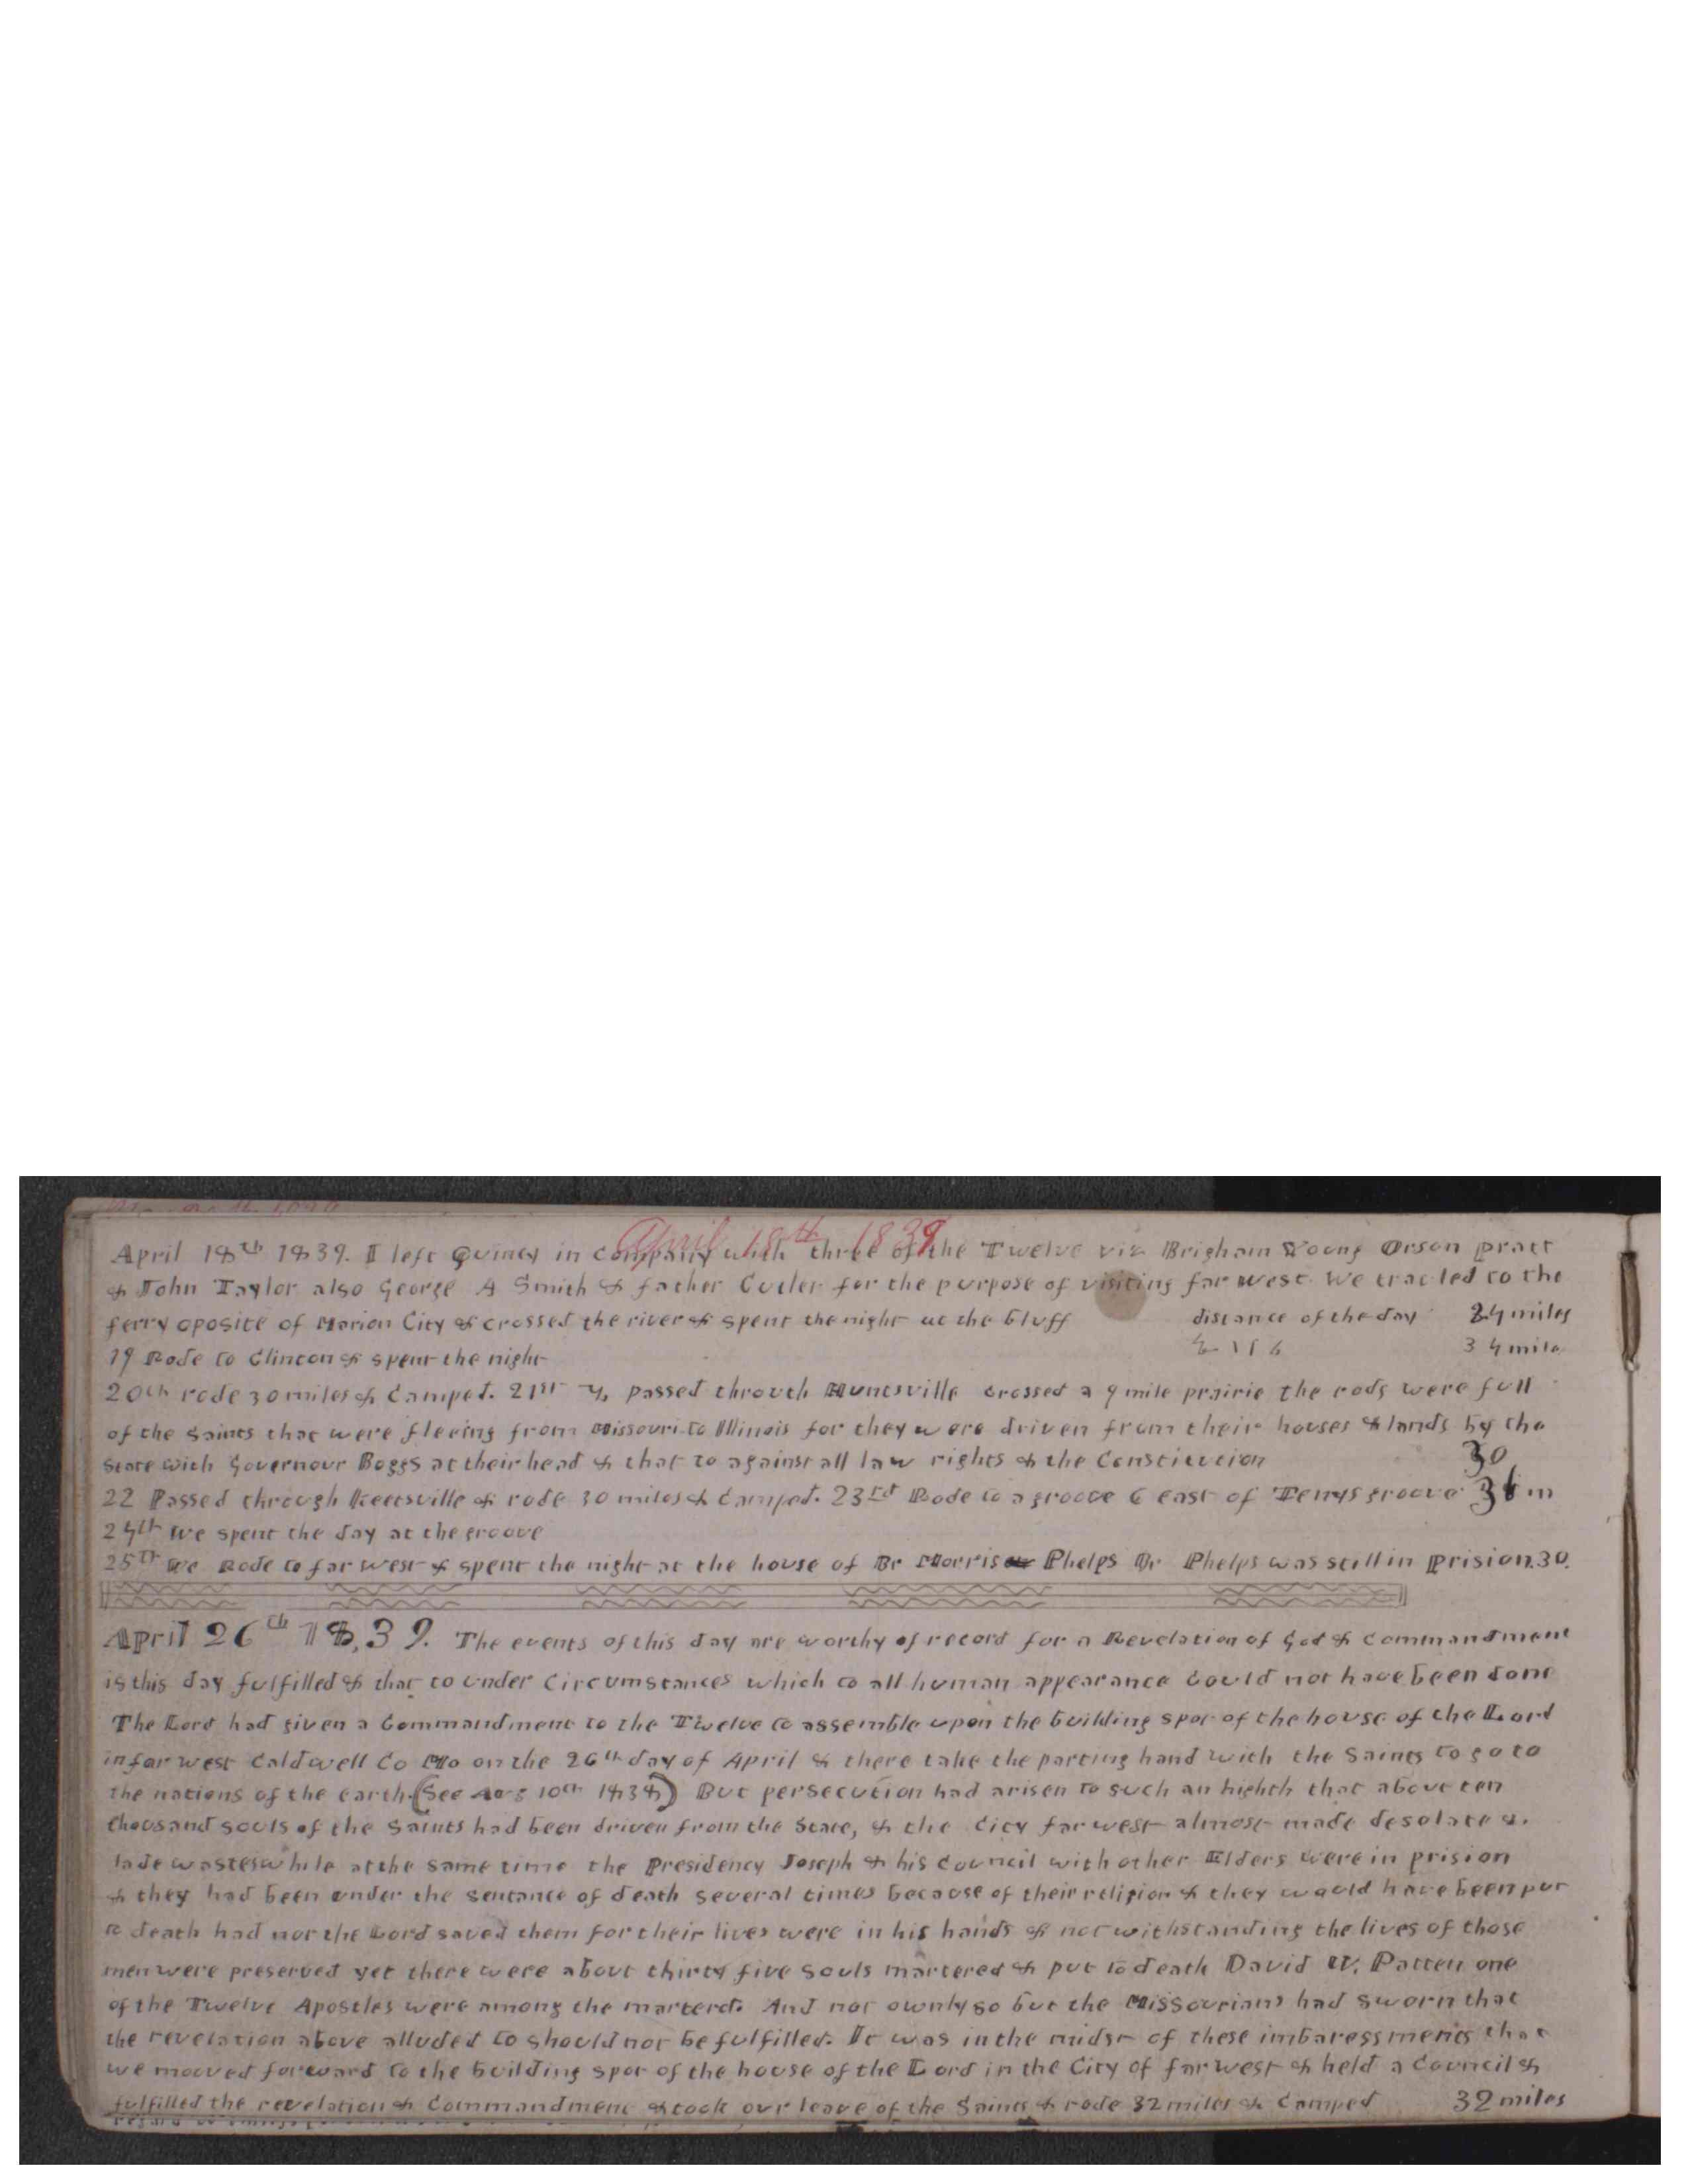 April 18th 1839
April 18th 1839. I left Quincy in company with three of the Twelve viz Brigham Young Orson Pratt
& John Taylor also George A Smith & father Cutler for the purpose of visiting far west. We tracled to the
ferry oposite of Marion City & crossed the river & spent the night at the bluff distance of the day 24 miles
19 Rode to Clinton & spent the night 34 mile
20th rode 30 miles & Camped. 21st passed throuth Huntsville crossed a 9 mile prairie the rods were full
of the Saints that were fleeing from Missouri to Illinois for they were driven from their houses & lands by the
State with Governour Boggs at their head & that to against all law rights & the Constitution 30
22 Passed through Keetsville & rode 30 miles & camped. 23rd Rode to a groove 6 east of Tenys groove 36 m
24th We spent the day at the groove
25th We Rode to far west & spent the night at the house of Br Morris Phelps Br Phelps was still in prision. 30.
April 26th 18,39. The events of this day are worthy of record for a Revelation of God & commandment
is this day fulfilled & that to under Circumstances which to all human appearance Could not have been done
The Lord had given a Commandment to the Twelve to assemble upon the building spot of the house of the Lord
in far west Caldwell Co Mo on the 26th day of April & there take the parting hand with the Saints to go to
the nations of the earth. (See 10th 1838) But persecution had arisen to such an highth that above ten
thousand souls of the Saints had been driven from the State, & the City far west almost made desolate &
lade wastes while at the same time the Presidency Joseph & his Council with other Elders were in prision
& they had been under the sentance of death several times because of their religion & they would have been put
to death had not the Lord saved them for their lives were in his hands & notwithstanding the lives of those
men were preserved yet there were about thirty five souls martered & put to death David W. Patten one
of the Twelve Apostles were among the marterd. And not ownly so but the Missourians had sworn that
the revelation above alluded to should not be fulfilled. It was in the midst of these imbaressments that
we mooved forward to the building spot of the house of the Lord in the City of far west & held a Council &
fulfilled the revelation & Commandment & took our leave of the Saints & rode 32 miles & Camped 32 miles